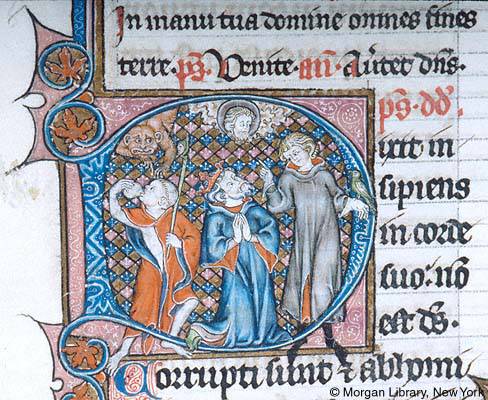 In manu tua domine omnes fines
terre. ps. Venite. an. Av̓tet dn̄s.
ps. dd.
Dixit in
sipiens
in corde
suo: nō
est ds̄.
Corrupti sunt ⁊ abhomi
© Morgan Library, New York